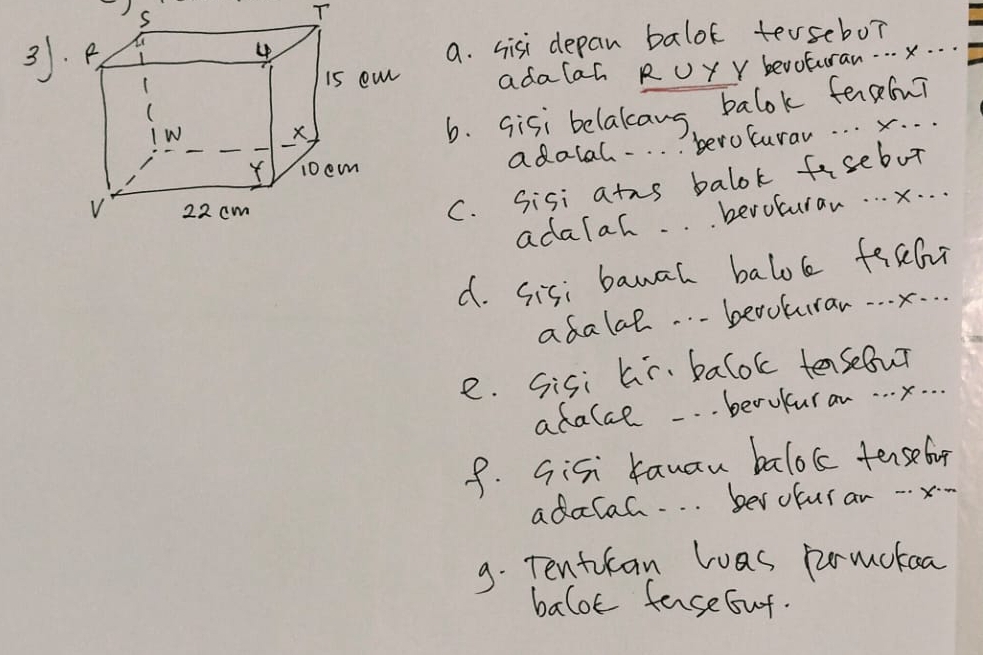 3). R S T U
15 cm
W X
V Y 10 cm
22 cm
a. sisi depan balok tersebut
adalah RUYV berukuran ... x ...
b. sisi belakang balok tersebut
adalah .... berukuran ... x ...
c. sisi atas balok tersebut
adalah ... berukuran ... x ...
d. sisi bawah balok tersebut
adalah ... berukuran ... x ...
e. sisi kiri balok tersebut
adalah .... berukuran ... x ...
f. sisi kanan balok tersebut
adalah ... berukuran ... x ...
g. Tentukan luas permukaa
balok tersebut.